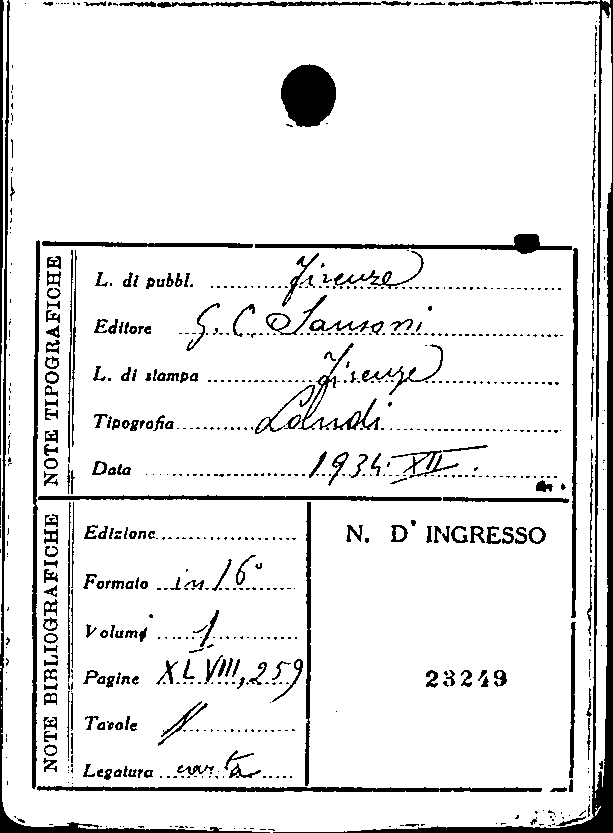 NOTE TIPOGRAFICHE
L. di pubbl. Firenze
Editore G. C. Sansoni
L. di stampa Firenze
Tipografia Landi
Data 1934. XII.
NOTE BIBLIOGRAFICHE
Edizione
Formato in 16°
Volumi 1
Pagine XLVIII, 259
Tavole
Legatura carta
N. D' INGRESSO
23249